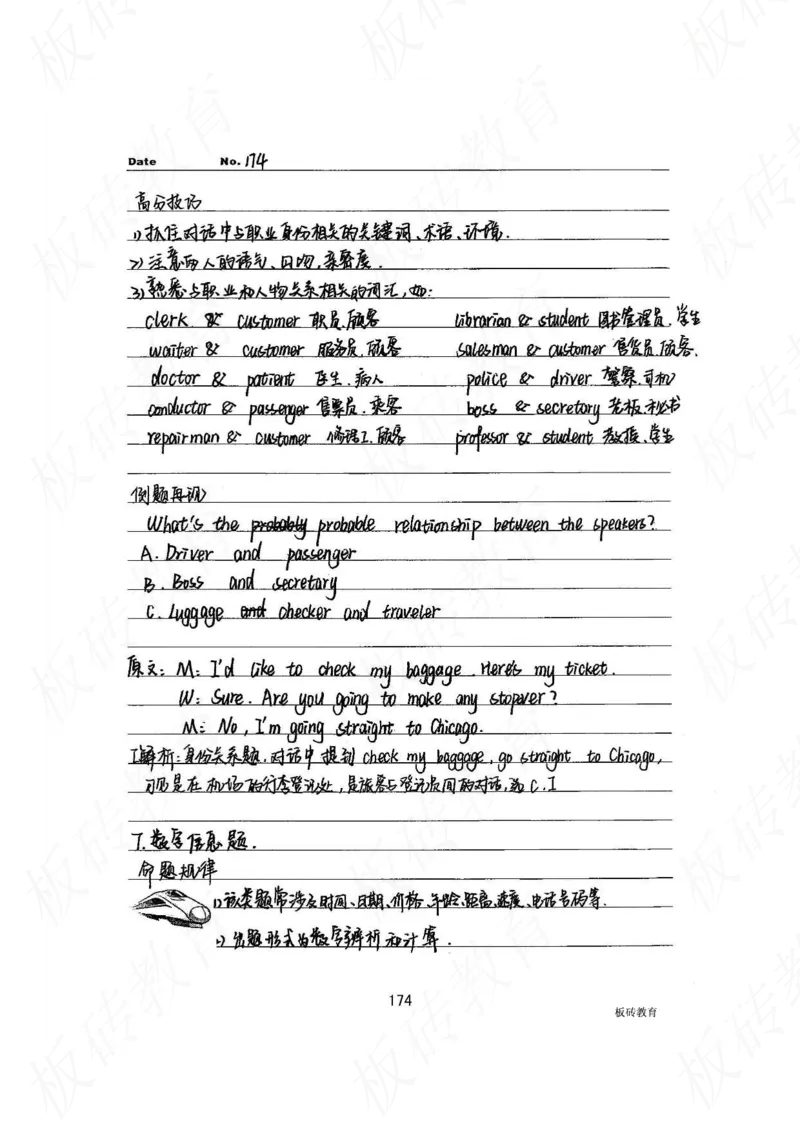 Date No. 174
高分技巧
1) 抓住对话中与职业身份相关的关键词、术语、环境.
2) 注意两人的语气、口吻,亲密度.
3) 熟悉与职业和人物关系相关的词汇,如:
clerk & customer 职员.顾客 librarian & student 图书管理员.学生
waiter & customer 服务员.顾客 salesman & customer 售货员.顾客.
doctor & patient 医生.病人 police & driver 警察.司机
conductor & passenger 售票员.乘客 boss & secretary 老板.秘书
repairman & customer 修理工.顾客 professor & student 教授、学生
例题再现
What's the probably probable relationship between the speakers?
A. Driver and passenger
B. Boss and secretary
C. Luggage and checker and traveler
原文: M: I'd like to check my baggage. Here's my ticket.
W: Sure. Are you going to make any stopver?
M: No, I'm going straight to Chicago.
[解析:身份关系题.对话中提到check my baggage, go straight to Chicago,
可见是在机场的行李登记处,是旅客与登记员间的对话,选C.]
7.数字信息题.
命题规律
1) 该类题常涉及时间、日期、价格、年龄、距离、速度、电话号码等.
2) 出题形式为数字辨析和计算.
174
板砖教育
板砖教育